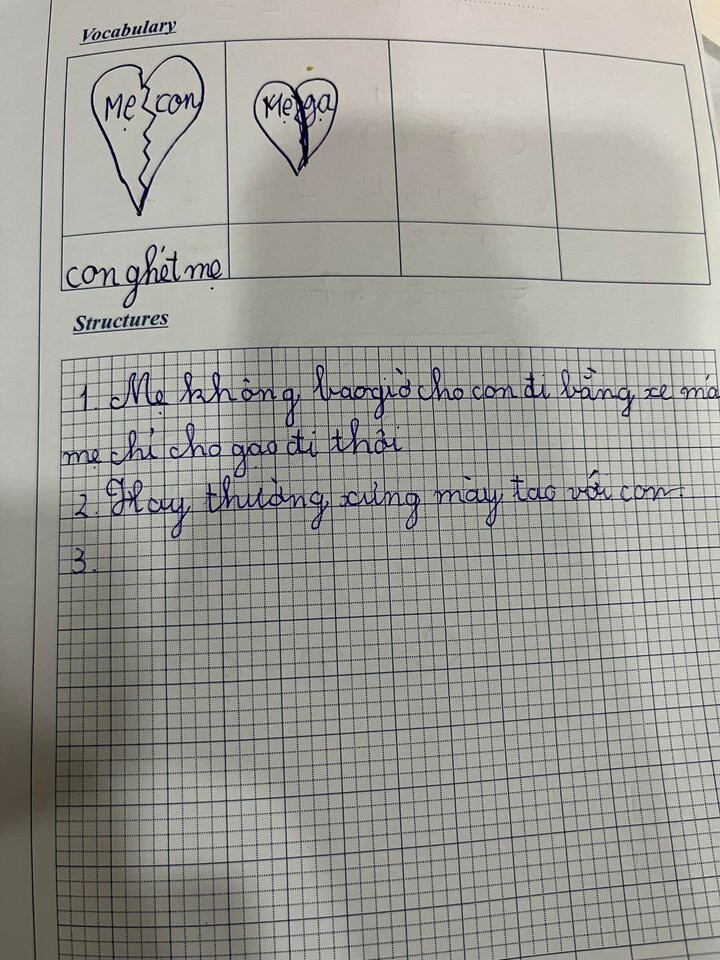 Vocabulary
Mẹ con
Mẹ gạ
con ghét mẹ
Structures
1. Mẹ không bao giờ cho con đi bằng xe má
mẹ chỉ cho gạo đi thôi
2. Hay thường xưng mày tao với con
3.